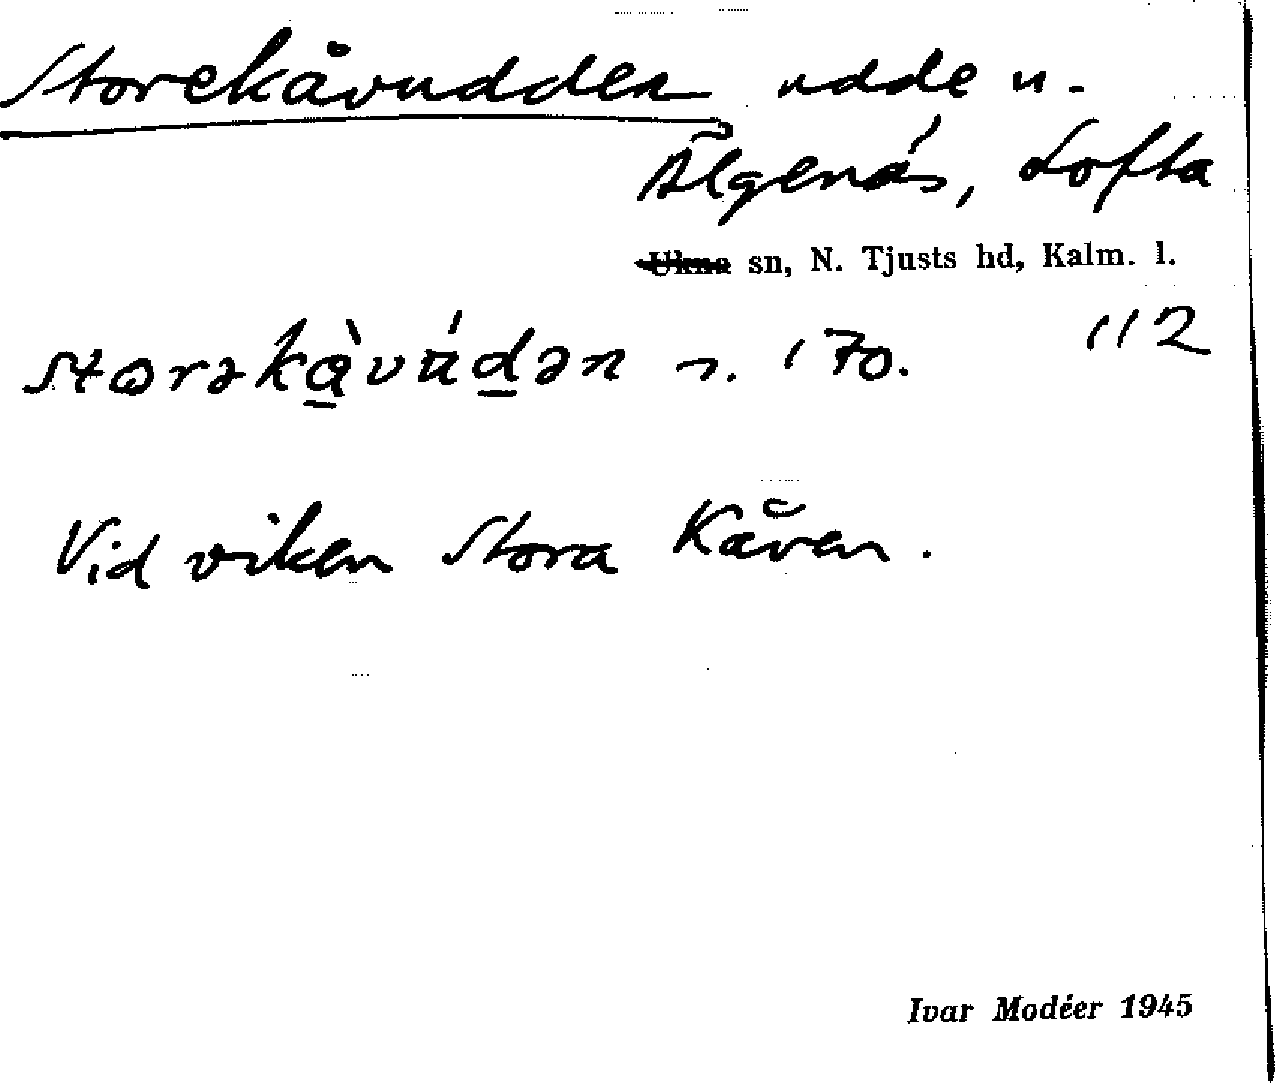 Storekåvudden udde u.
Älgenäs, Lofta
Ukna sn, N. Tjusts hd, Kalm. l.
112
storəkàvúdən n. 170.
Vid viken Stora Kåven.
Ivar Modéer 1945